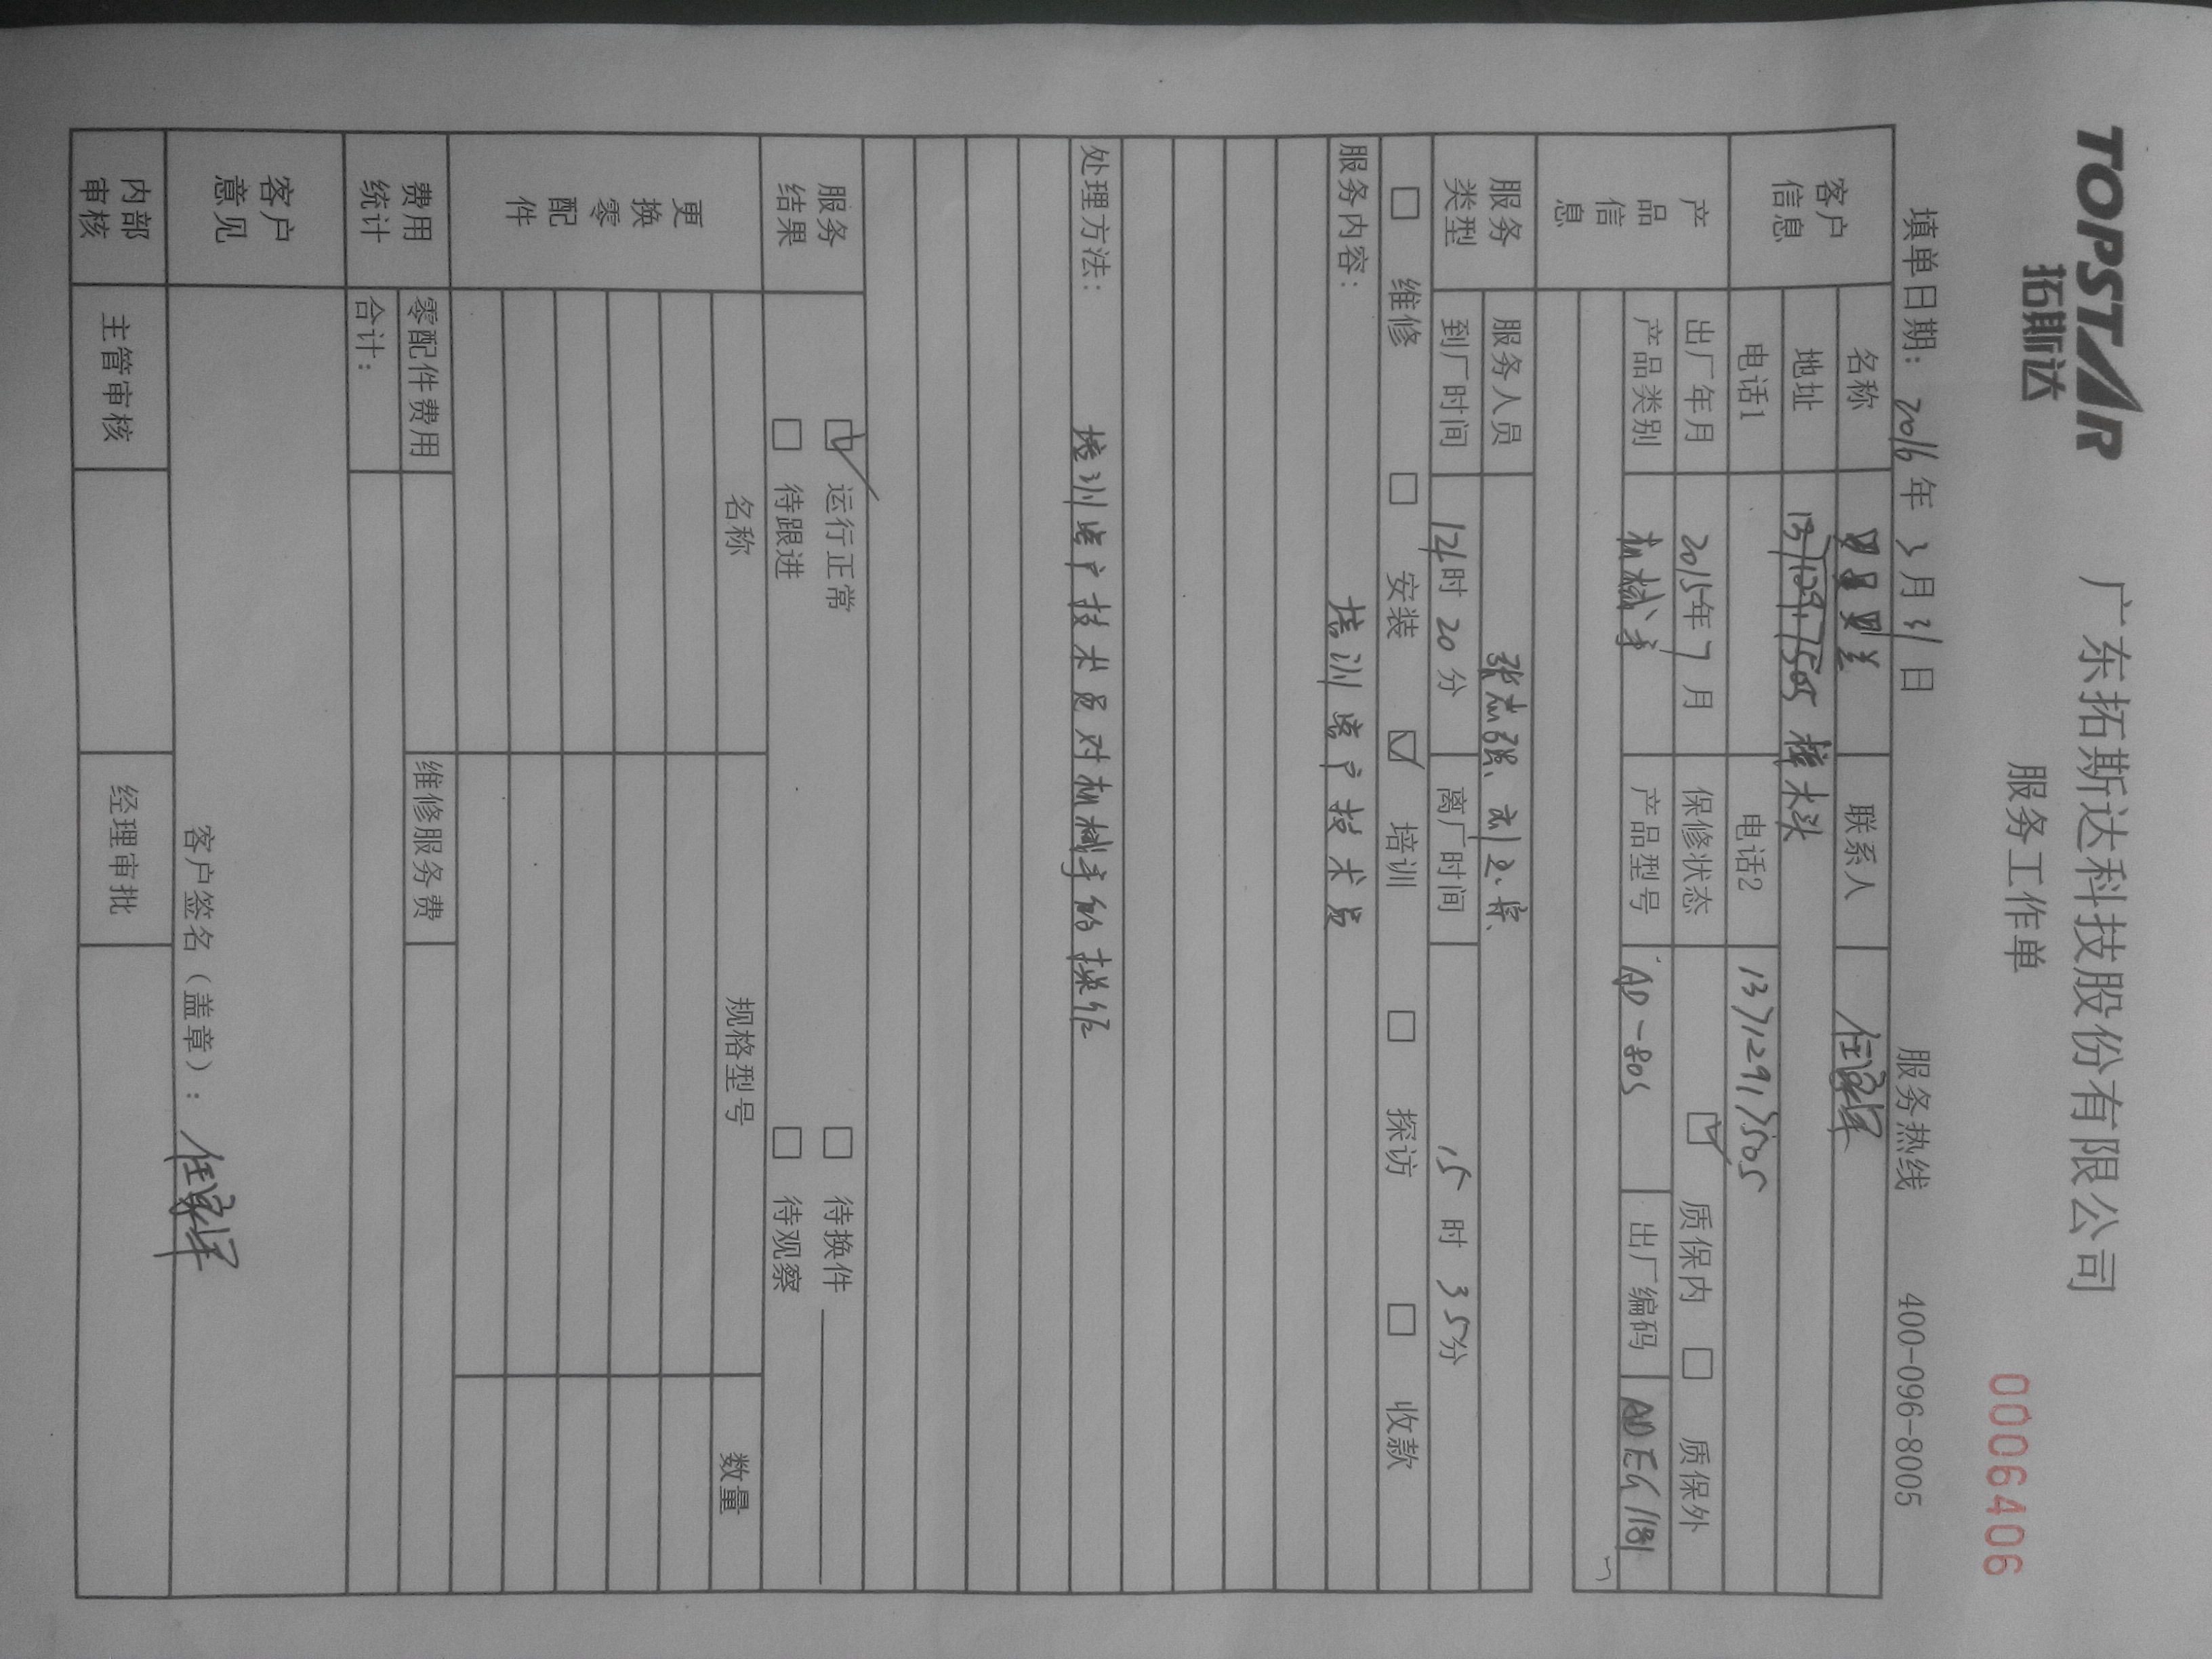 TOPSTAR
拓斯达
广东拓斯达科技股份有限公司
服务工作单
0006406
填单日期: 2016 年 3 月 31 日 服务热线 400-096-8005
客户信息
名称 联系人
地址 樟木头
电话1 电话2 13712917505
产品信息
出厂年月 2015年 7 月 保修状态 质保内 质保外
产品类别 机械手 产品型号 AD-80S 出厂编码
服务类型
服务人员
到厂时间 时 20 分 离厂时间 15 时 35分
维修 安装 培训 探访 收款
服务内容: 培训客户技术员
处理方法: 培训客户技术员对机械手的操作
服务结果
运行正常 待换件
待跟进 待观察
更换零配件
名称 规格型号 数量
费用统计
零配件费用 维修服务费
合计:
客户意见
客户签名(盖章):
内部审核
主管审核 经理审批